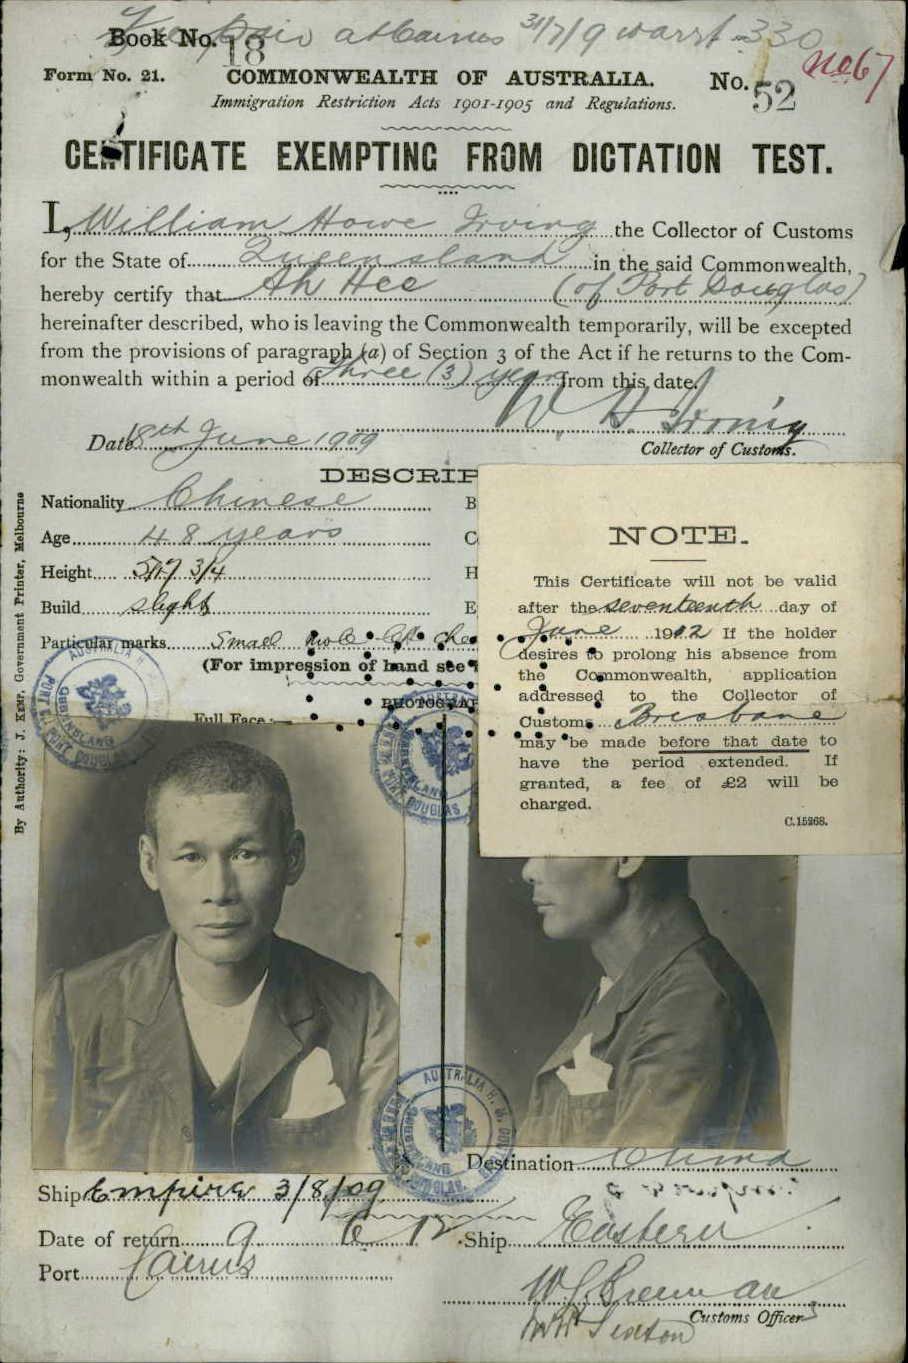 Book No. 18 at Cairns 31/7/9 warrt 330
Form No. 21. COMMONWEALTH OF AUSTRALIA. No. 52 No 67
Immigration Restriction Acts 1901-1905 and Regulations.
CERTIFICATE EXEMPTING FROM DICTATION TEST.
I, William Howe Irving the Collector of Customs
for the State of Queensland in the said Commonwealth,
hereby certify that Ah Hee (of Port Douglas)
hereinafter described, who is leaving the Commonwealth temporarily, will be excepted
from the provisions of paragraph (a) of Section 3 of the Act if he returns to the Com-
monwealth within a period of Three (3) years from this date.
W. H. Irving
Date 18th June 1909 Collector of Customs.
DESCRIP
Nationality Chinese B
Age 48 years C
Height 5ft 7 3/4 H
Build slight E
Particular marks Small mole left che
(For impression of hand see
PHOTOGRAP
Full Face:—
NOTE.
This Certificate will not be valid
after the seventeenth day of
June 1912 If the holder
desires to prolong his absence from
the Commonwealth, application
addressed to the Collector of
Customs Brisbane
may be made before that date to
have the period extended. If
granted, a fee of £2 will be
charged.
C.15268.
By Authority: J. KEMP, Government Printer, Melbourne
AUSTRALIA H. M. CUSTOMS
QUEENSLAND
PORT DOUGLAS
Destination China
Ship Empire 3/8/09
Date of return 9 6 12 Ship Eastern
Port Cairns
Customs Officer